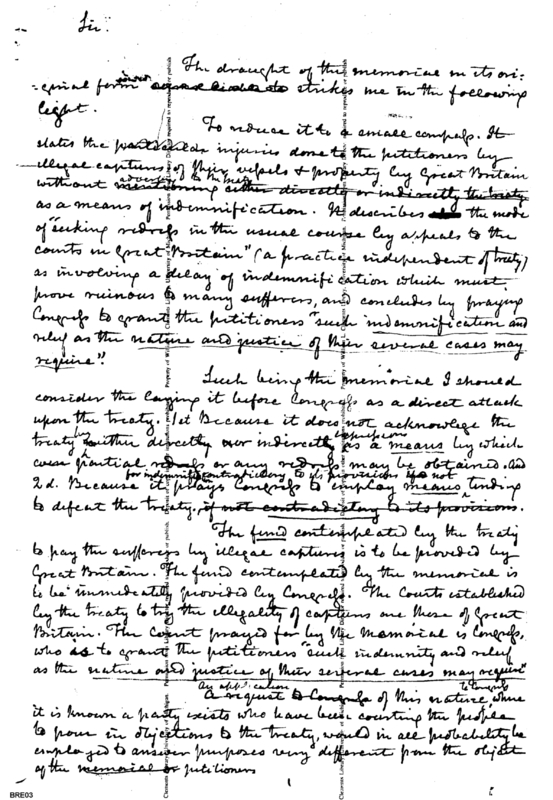 Sir.
The draught of the memorial in its ori-
-ginal form strikes me in the following
light.
To reduce it to a small compass. It
states the particular injuries done to the petitioners by
illegal captures of their vessels & property by Great Britain
without mentioning either directly or indirectly the treaty
as a means of indemnification. It describes the mode
of "seeking redress in the usual course by appeals to the
courts in Great Britain" (a practice independent of treaty)
as involving a delay of indemnification which must
prove ruinous to many sufferers, and concludes by praying
Congress to grant the petitioners "such indemnification and
relief as the nature and justice of their several cases may
require".
Such being the memorial I should
consider the laying it before Congress as a direct attack
upon the treaty. 1st Because it does not acknowlege the
treaty by either directly nor indirectly expression as a means by which
even partial redress or any redress may be obtained. And
for indemnity contradictory to its provisions if not
2d. Because it prays Congress to employ means tending
to defeat the treaty. if not contradictory to its provisions.
The fund contemplated by the treaty
to pay the sufferers by illegal captures is to be provided by
Great Britain. The fund contemplated by the memorial is
to be immediately provided by Congress. The Courts established
by the treaty to try the illegality of captures are those of Great
Britain. The Court prayed for by the Memorial is Congress,
who is to grant the petitioners "such indemnity and relief
as the nature and justice of their several cases may require"
An application to Congress
A request to Congress of this nature, where
it is known a party exists who have been courting the people
to pour in objections to the treaty, would in all probability be
employed to answer purposes very different from the object
of the memorial or petitioners
BRE03